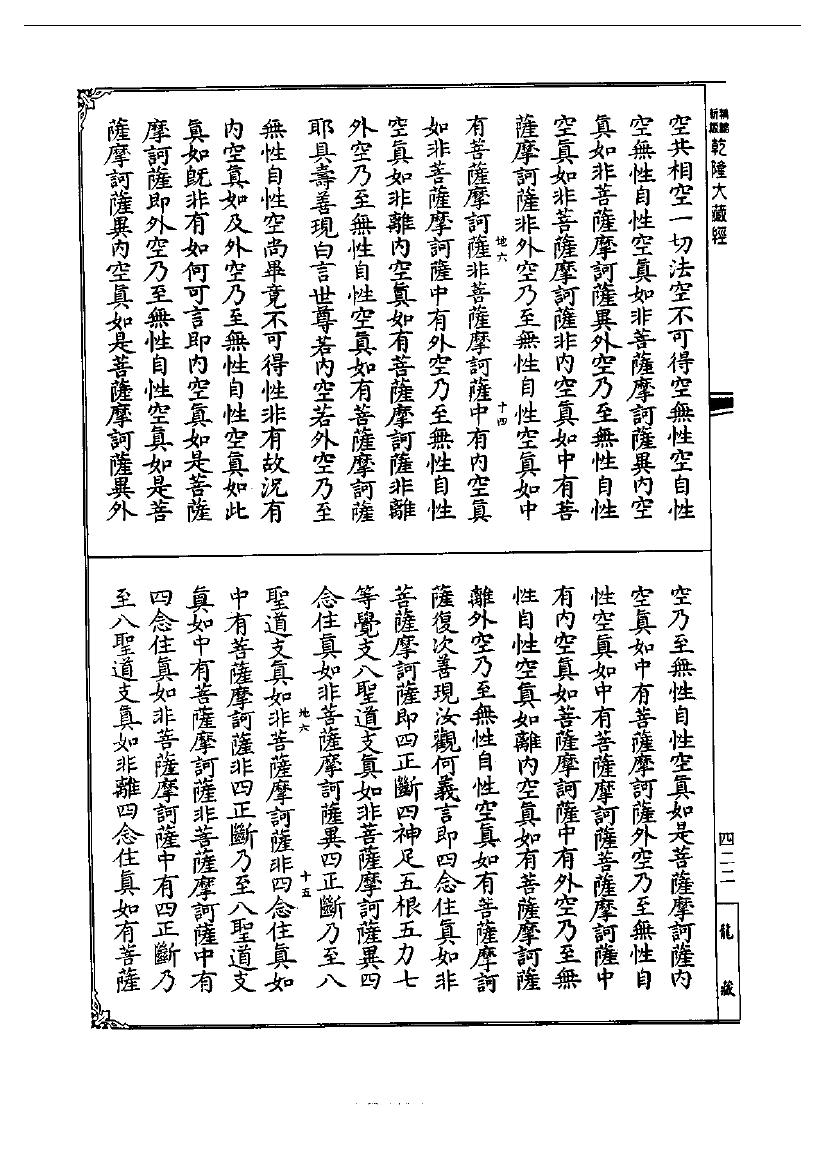 新編縮本乾隆大藏經
空共相空一切法空不可得空無性空自性
空無性自性空真如非菩薩摩訶薩異內空
真如非菩薩摩訶薩異外空乃至無性自性
空真如非菩薩摩訶薩非內空真如中有菩
薩摩訶薩非外空乃至無性自性空真如中
地六
十四
有菩薩摩訶薩非菩薩摩訶薩中有內空真
如非菩薩摩訶薩中有外空乃至無性自性
空真如非離內空真如有菩薩摩訶薩非離
外空乃至無性自性空真如有菩薩摩訶薩
耶具壽善現白言世尊若內空若外空乃至
無性自性空尚畢竟不可得性非有故況有
內空真如及外空乃至無性自性空真如此
真如既非有如何可言即內空真如是菩薩
摩訶薩即外空乃至無性自性空真如是菩
薩摩訶薩異內空真如是菩薩摩訶薩異外
空乃至無性自性空真如是菩薩摩訶薩內
空真如中有菩薩摩訶薩外空乃至無性自
性空真如中有菩薩摩訶薩菩薩摩訶薩中
有內空真如菩薩摩訶薩中有外空乃至無
性自性空真如離內空真如有菩薩摩訶薩
離外空乃至無性自性空真如有菩薩摩訶
薩復次善現汝觀何義言即四念住真如非
菩薩摩訶薩即四正斷四神足五根五力七
等覺支八聖道支真如非菩薩摩訶薩異四
念住真如非菩薩摩訶薩異四正斷乃至八
地六
十五
聖道支真如非菩薩摩訶薩非四念住真如
中有菩薩摩訶薩非四正斷乃至八聖道支
真如中有菩薩摩訶薩非菩薩摩訶薩中有
四念住真如非菩薩摩訶薩中有四正斷乃
至八聖道支真如非離四念住真如有菩薩
四二二
龍藏